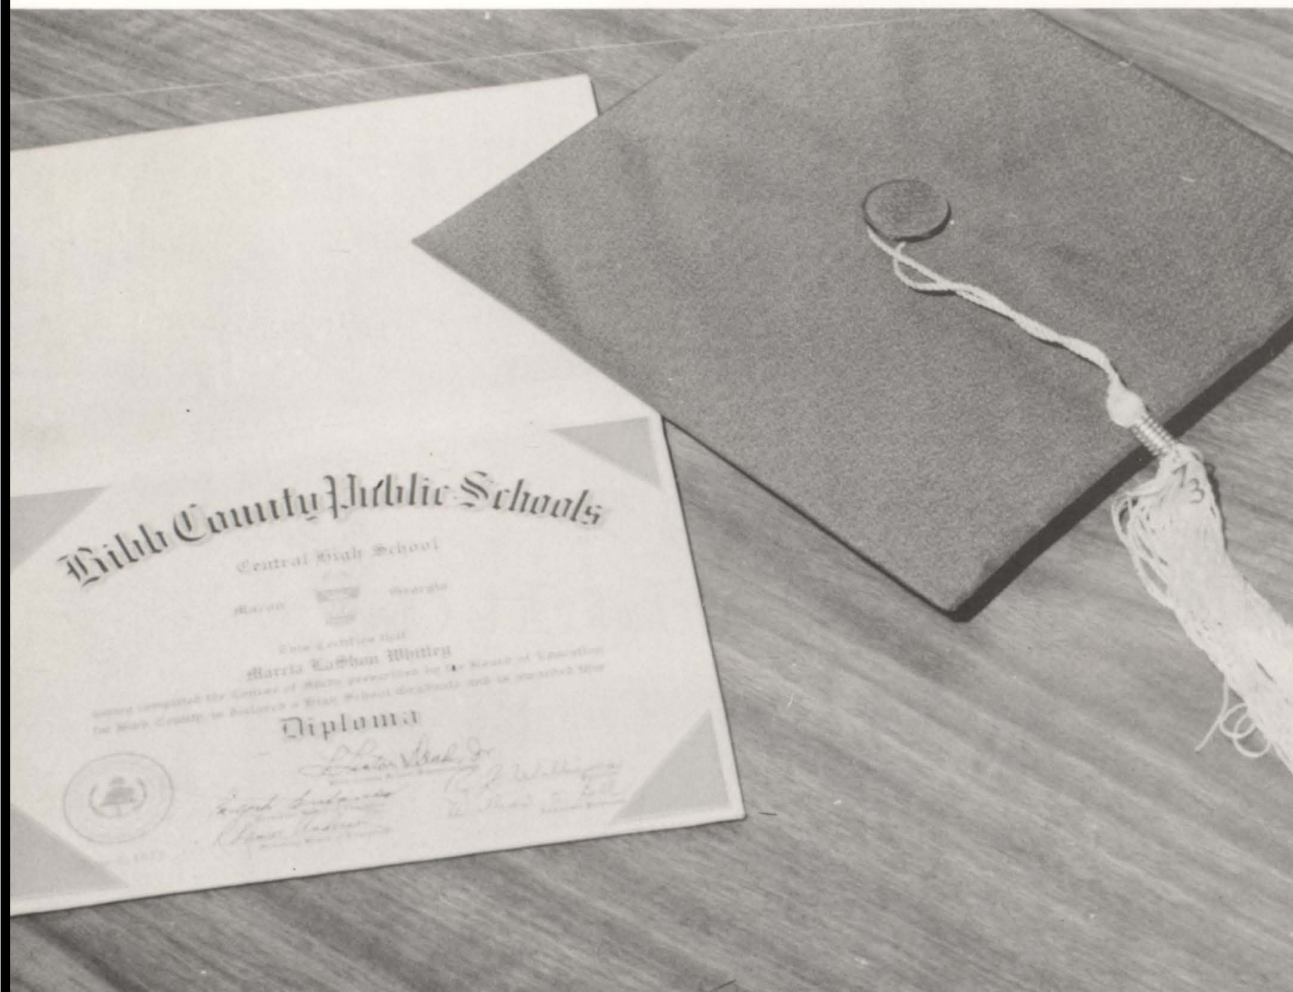 Bibb County Public Schools
Central High School
Macon Georgia
This Certifies that
Marcia LaShon Whitley
having completed the Course of Study prescribed by the Board of Education
for Bibb County, is declared a High School Graduate and is awarded this
Diploma
73